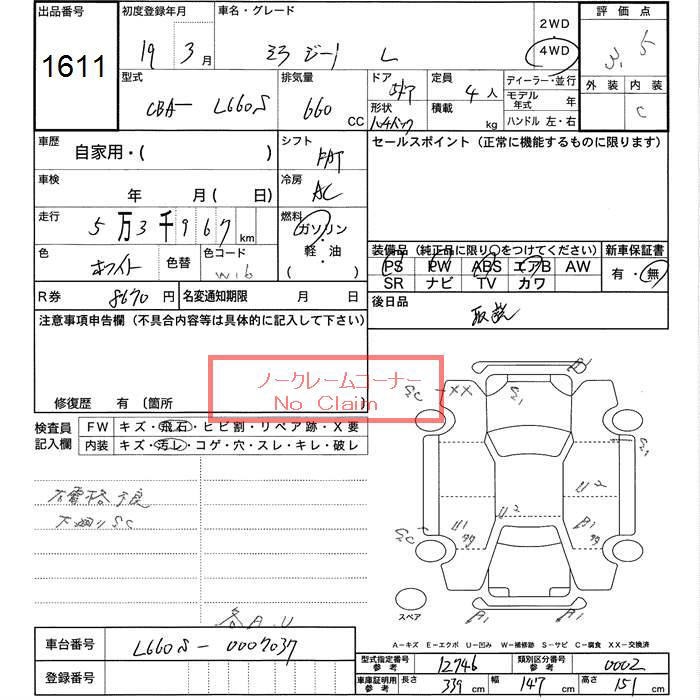 出品番号 初度登録年月 車名・グレード 2WD 評価点
1611 19年 3月 ミラ ジーノ L 4WD 3.5
型式 排気量 ドア 定員 ディーラー・並行 外装 内装
CBA- L660S 660 CC 5ドア 4人 モデル年式 年 C
形状 積載 kg ハンドル 左・右
ハッチバック
車歴 自家用・( ) シフト FAT セールスポイント (正常に機能するものに限ります)
車検 年 月( 日) 冷房 AC
走行 5万3千967km 燃料 ガソリン
軽・油
( )
色 ホワイト 色替 色コード W16
装備品 (純正品に限り○をつけてください) 新車保証書
PS PW ABS エアB AW 有・無
SR ナビ TV カワ
R券 8670円 名変通知期限 月 日 後日品 取説
注意事項申告欄 (不具合内容等は具体的に記入して下さい)
ノークレームコーナー
No Claim
修復歴 有 (箇所
検査員記入欄 FW キズ・飛石・ヒビ割・リペア跡・X要
内装 キズ・汚レ・コゲ・穴・スレ・キレ・破レ
下廻りSC
各A.U
XX
U2
U2
U1
A1
A1
A1
スペア
A-キズ E-エクボ U-凹み W-補修跡 S-サビ C-腐食 XX-交換済
車台番号 L660S-0007037
登録番号
型式指定番号 参考 12746 類別区分番号 参考 0002
車庫証明用 参考 長さ 339cm 幅 147cm 高さ 151cm